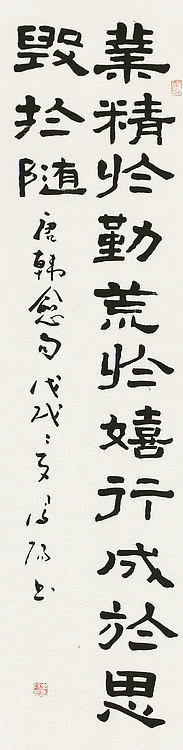 業精於勤荒於嬉行成於思
毀於随
唐韓愈句戊戌